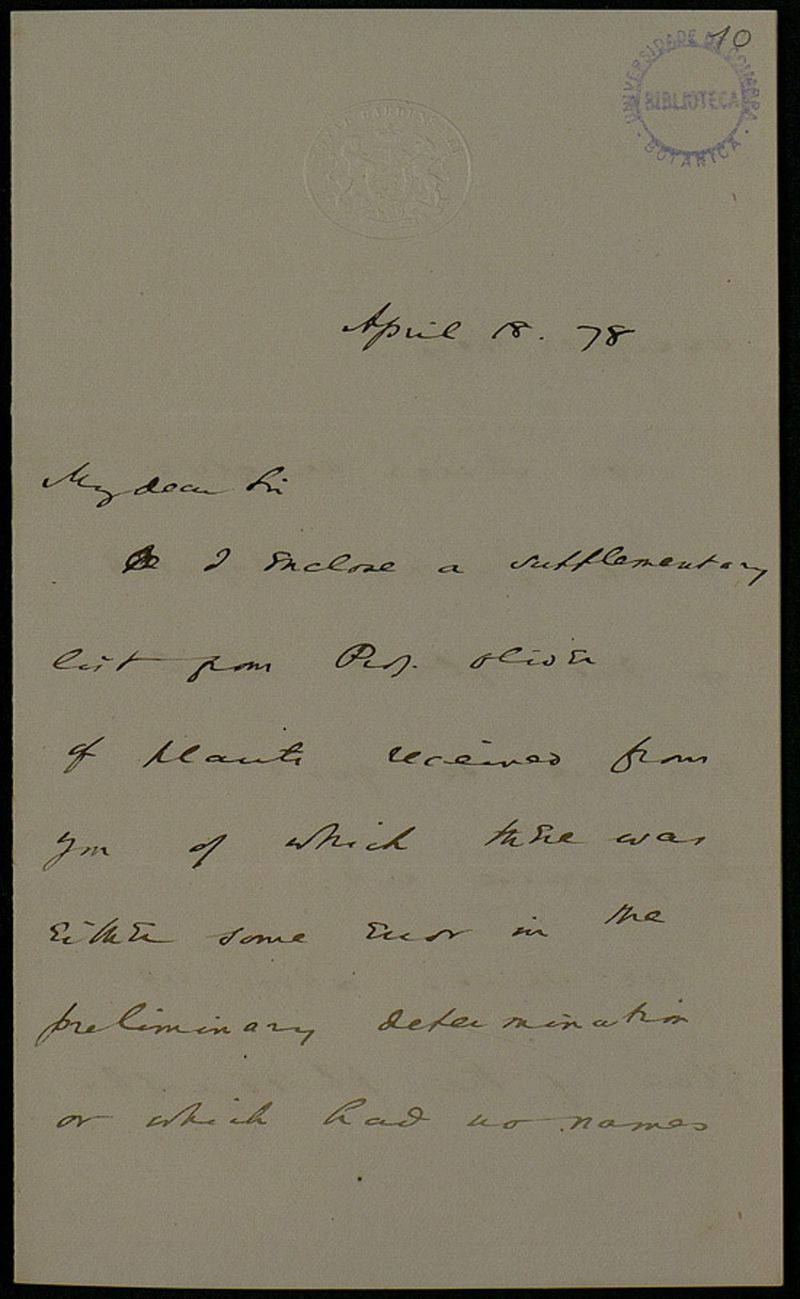 10
UNIVERSIDADE DE COIMBRA
BIBLIOTECA
BOTANICA
April 18. 78
My dear Sir
I enclose a supplementary
list from Prof. Oliver
of plants received from
you of which there was
either some error in the
preliminary determination
or which had no names